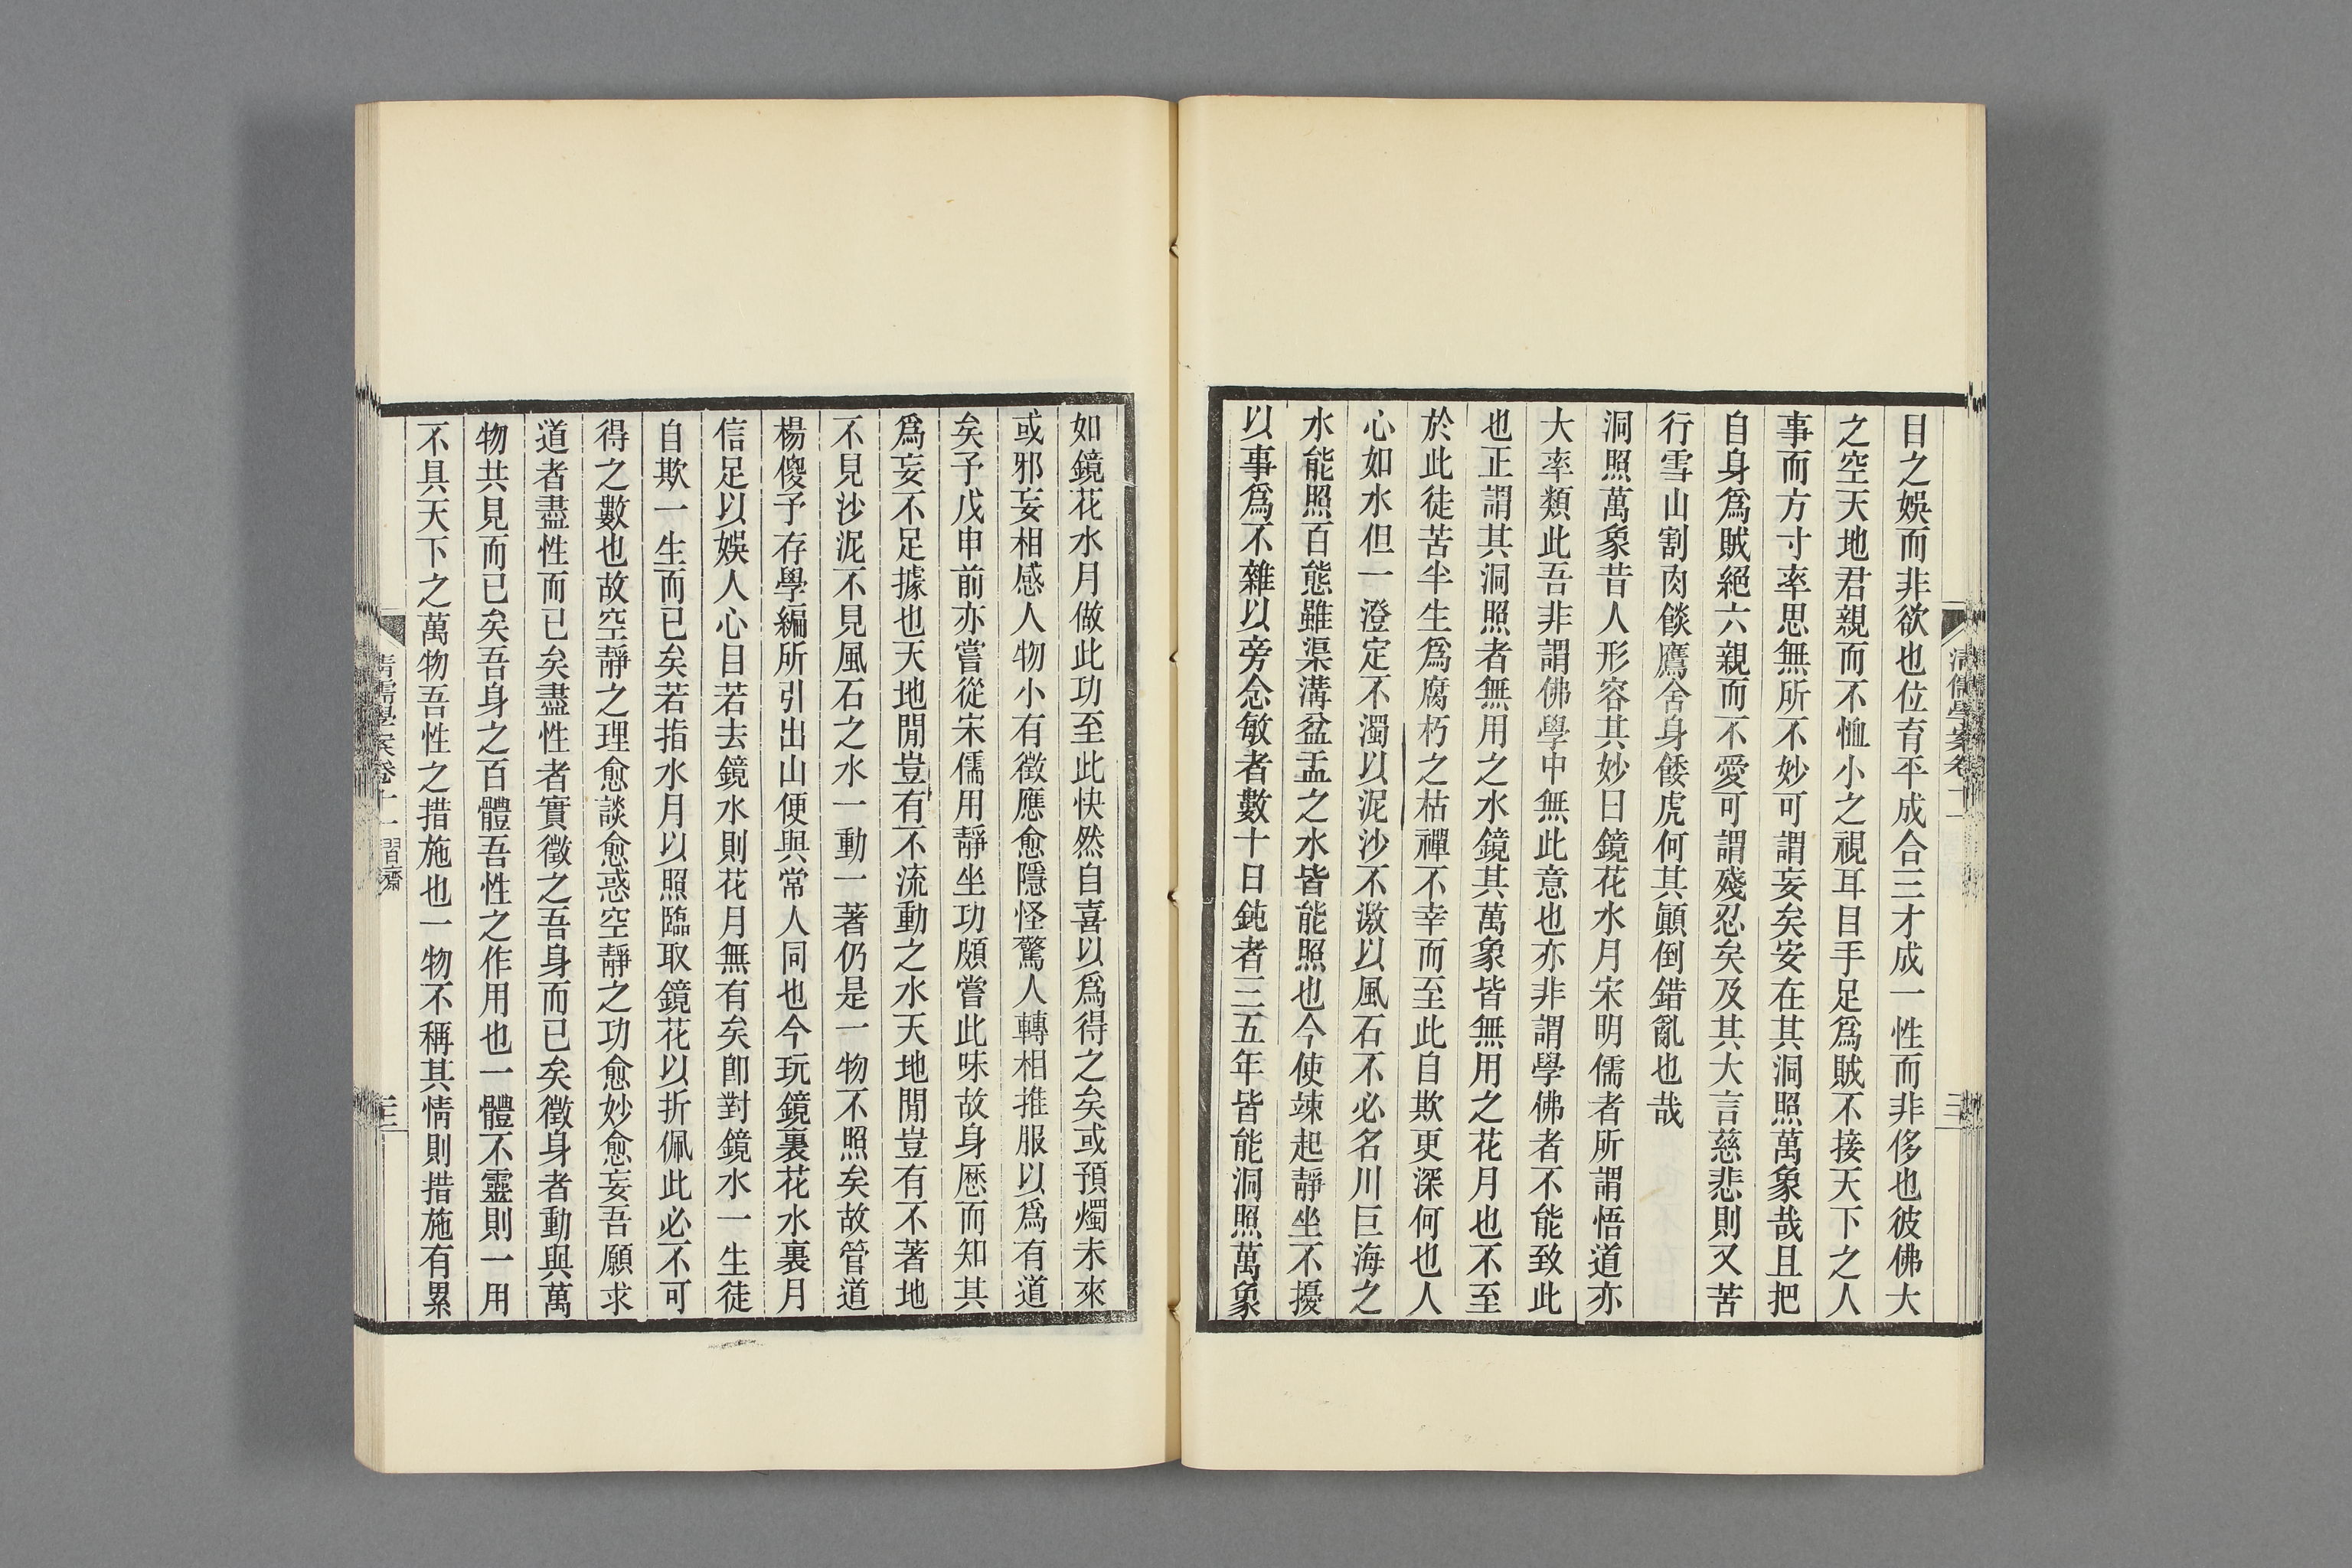 目之娛而非欲也位育平成合三才成一性而非侈也彼佛大
之空天地君親而不恤小之視耳目手足爲賊不接天下之人
事而方寸率思無所不妙可謂妄矣安在其洞照萬象哉且把
自身爲賊絕六親而不愛可謂殘忍矣及其大言慈悲則又苦
行雪山割肉餤鷹舍身餧虎何其顚倒錯亂也哉
洞照萬象昔人形容其妙曰鏡花水月宋明儒者所謂悟道亦
大率類此吾非謂佛學中無此意也亦非謂學佛者不能致此
也正謂其洞照者無用之水鏡其萬象皆無用之花月也不至
於此徒苦半生爲腐朽之枯禪不幸而至此自欺更深何也人
心如水但一澄定不濁以泥沙不激以風石不必名川巨海之
水能照百態雖渠溝盆盂之水皆能照也今使竦起靜坐不擾
以事爲不雜以旁念敏者數十日鈍者三五年皆能洞照萬象
如鏡花水月做此功至此快然自喜以爲得之矣或預燭未來
或邪妄相感人物小有徵應愈隱怪驚人轉相推服以爲有道
矣予戊申前亦嘗從宋儒用靜坐功頗嘗此味故身歷而知其
爲妄不足據也天地閒豈有不流動之水天地閒豈有不著地
不見沙泥不見風石之水一動一著仍是一物不照矣故管道
楊傻予存學編所引出山便與常人同也今玩鏡裏花水裏月
信足以娛人心目若去鏡水則花月無有矣卽對鏡水一生徒
自欺一生而已矣若指水月以照臨取鏡花以折佩此必不可
得之數也故空靜之理愈談愈惑空靜之功愈妙愈妄吾願求
道者盡性而已矣盡性者實徵之吾身而已矣徵身者動與萬
物共見而已矣吾身之百體吾性之作用也一體不靈則一用
不具天下之萬物吾性之措施也一物不稱其情則措施有累
清儒學案卷十一 習齋
三